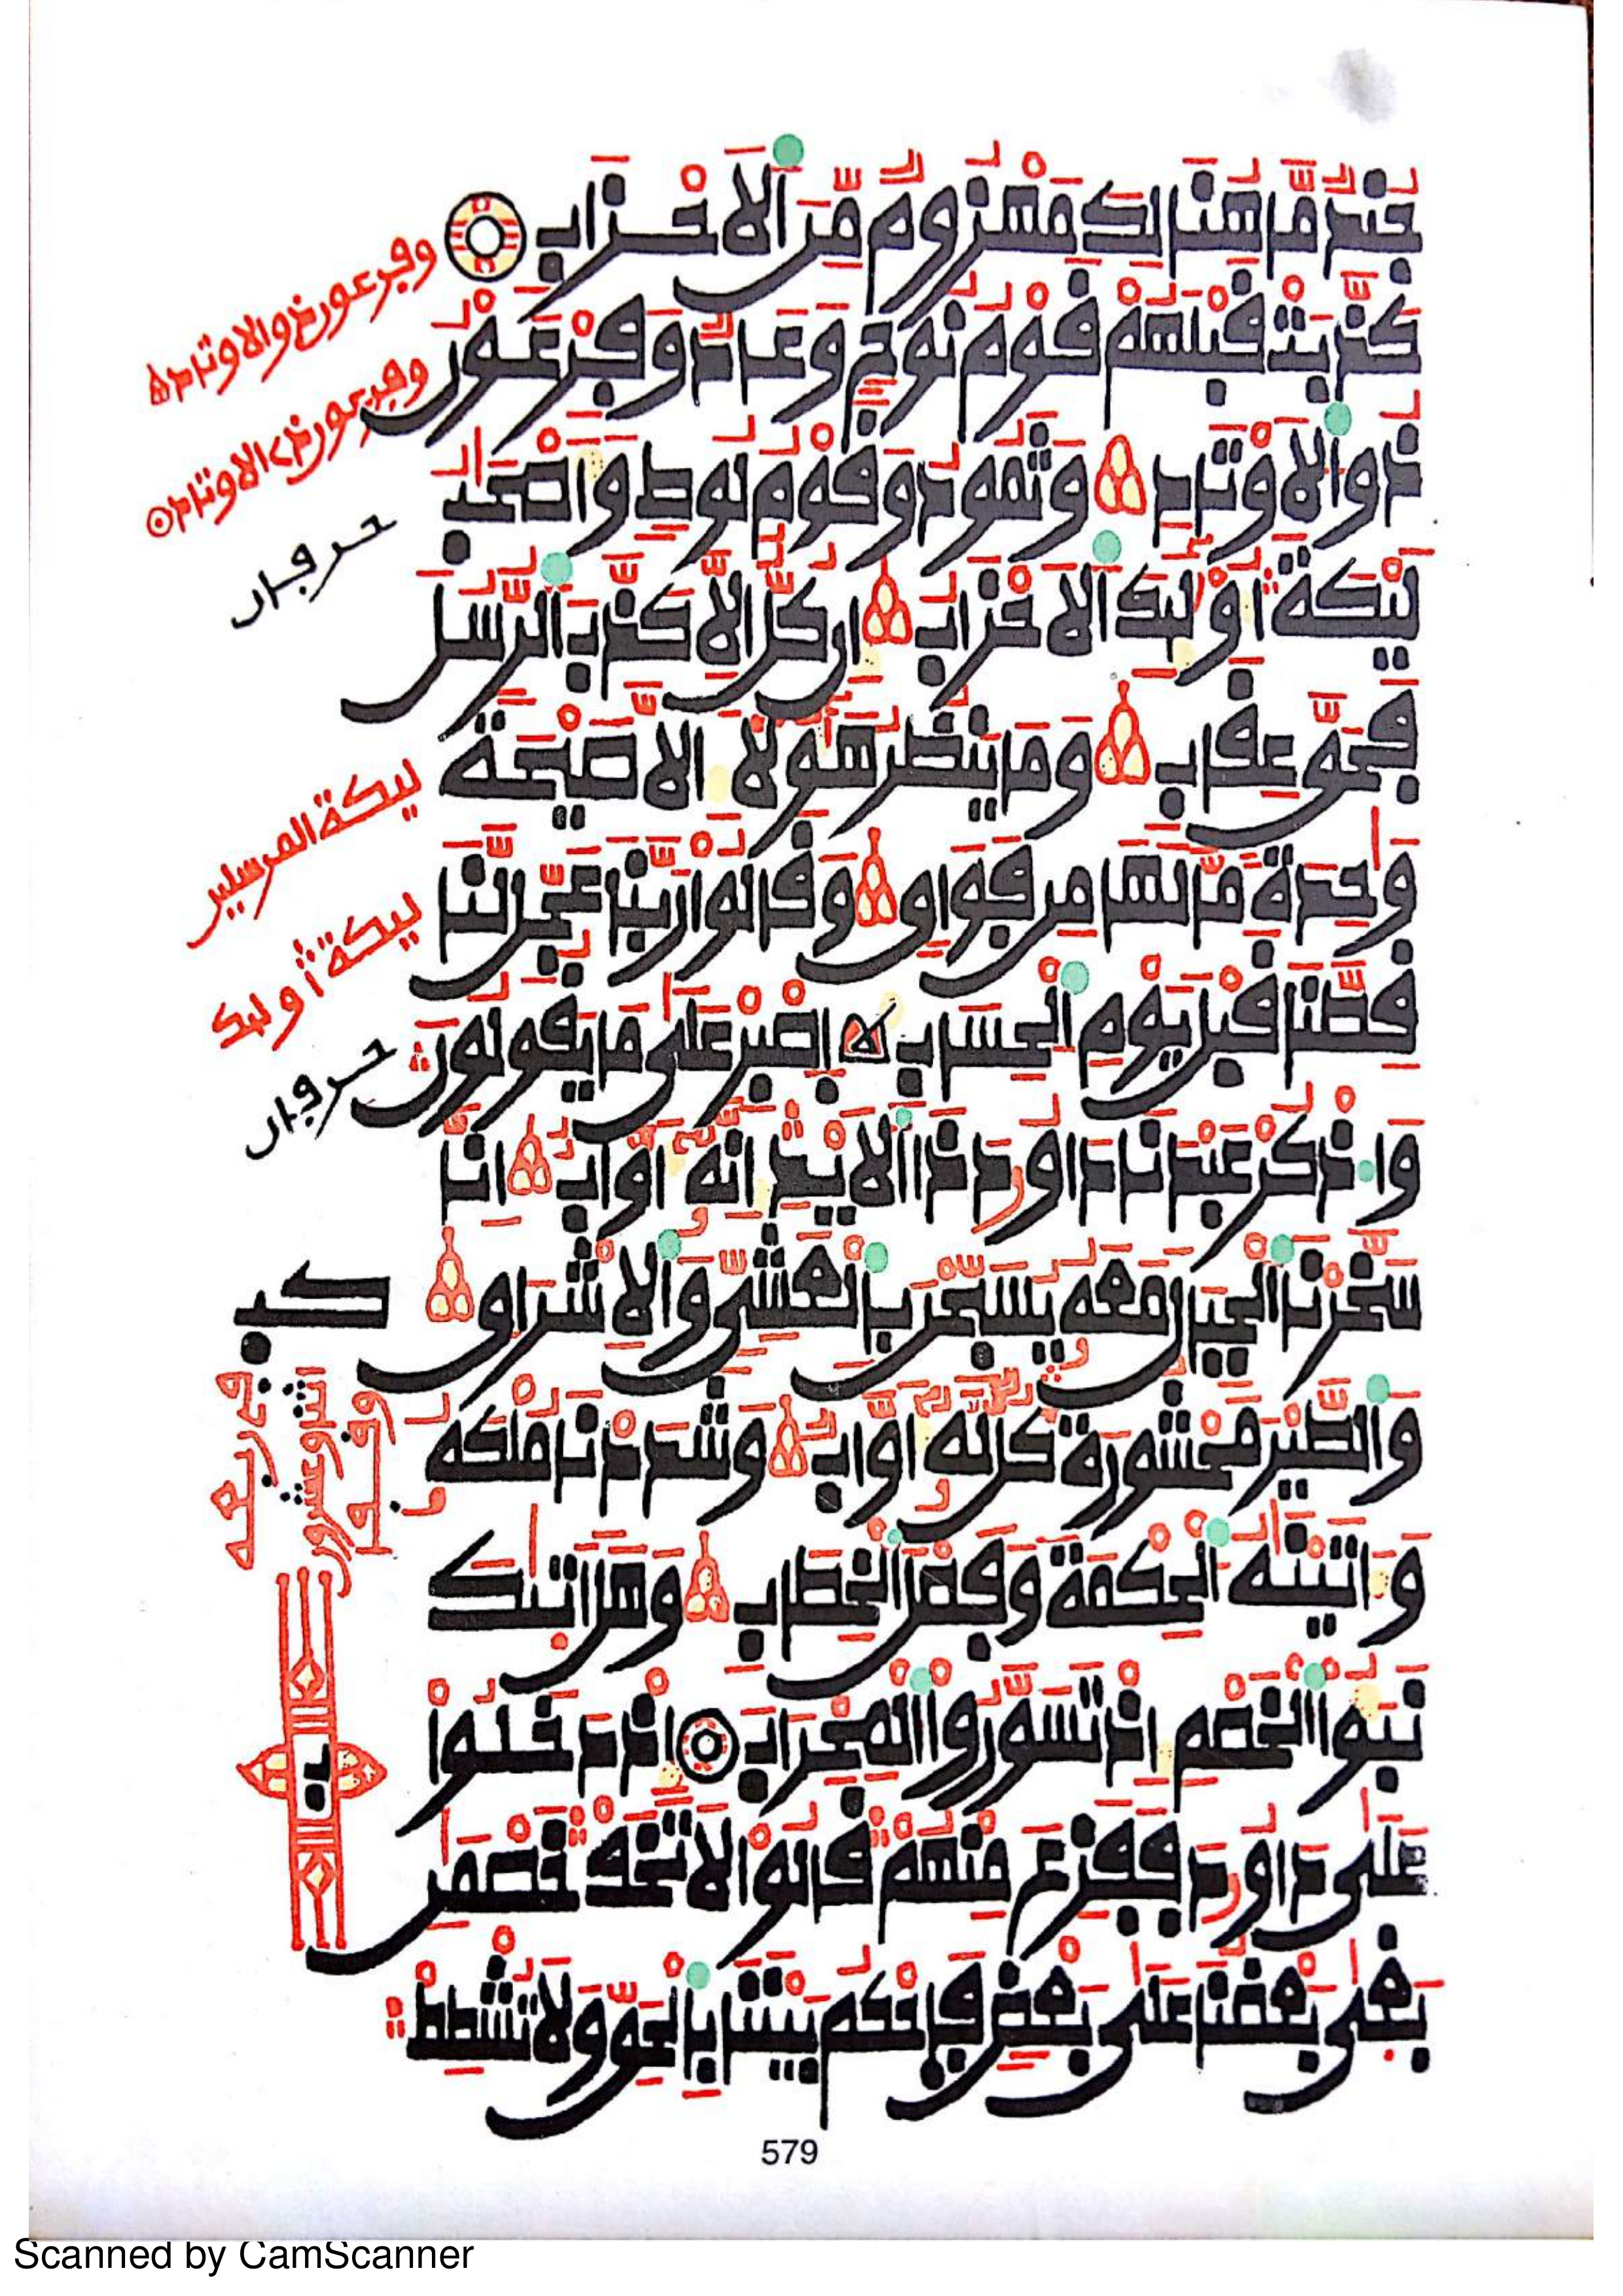 جُندٌ مَّا هُنَالِكَ مَهْزُومٌ مِّنَ ٱلَاحْزَابِ
كَذَّبَتْ قَبْلَهُمْ قَوْمُ نُوحٍ وَعَادٌ وَفِرْعَوْنُ
ذُو ٱلَاوْتَادِ وَثَمُودُ وَقَوْمُ لُوطٍ وَأَصْحَٰبُ
لَيْكَةَ أُوْلَٰئِكَ ٱلَاحْزَابُ إِن كُلٌّ إِلَّا كَذَّبَ ٱلرُّسُلَ
فَحَقَّ عِقَابِ وَمَا يَنظُرُ هَٰؤُلَاءِ الَّا صَيْحَةً
وَٰحِدَةً مَّا لَهَا مِن فَوَاقٍ وَقَالُوا رَبَّنَا عَجِّل لَّنَا
قِطَّنَا قَبْلَ يَوْمِ ٱلْحِسَابِ اِصْبِرْ عَلَىٰ مَا يَقُولُونَ
وَاذْكُرْ عَبْدَنَا دَاوُۥدَ ذَا ٱلَايْدِ إِنَّهُۥ أَوَّابٌ اِنَّا
سَخَّرْنَا ٱلْجِبَالَ مَعَهُۥ يُسَبِّحْنَ بِٱلْعَشِيِّ وَٱلِاشْرَاقِ
وَٱلطَّيْرَ مَحْشُورَةً كُلٌّ لَّهُۥ أَوَّابٌ وَشَدَدْنَا مُلْكَهُۥ
وَءَاتَيْنَٰهُ ٱلْحِكْمَةَ وَفَصْلَ ٱلْخِطَابِ وَهَلَ اتَىٰكَ
نَبَؤُا ٱلْخَصْمِ إِذْ تَسَوَّرُوا ٱلْمِحْرَابَ إِذْ دَخَلُوا
عَلَىٰ دَاوُۥدَ فَفَزِعَ مِنْهُمْ قَالُوا لَا تَخَفْ خَصْمَٰنِ
بَغَىٰ بَعْضُنَا عَلَىٰ بَعْضٍ فَاحْكُم بَيْنَنَا بِٱلْحَقِّ وَلَا تُشْطِطْ
وفرعون ذو الاوتاد
وفرعون ذي الاوتاد
حرفان
ليكة المرسلين
ليكة أولئك
حرفان
579
Scanned by CamScanner